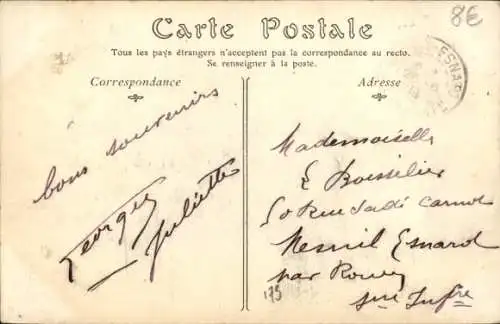 8€
Carte Postale
Tous les pays étrangers n'acceptent pas la correspondance au recto.
Se renseigner à la poste.
Correspondance
Adresse
bons souvenirs
Georgies
Juliette
Mademoiselle
E Boisselier
Rue Sadi Carnot
Mesnil Esnard
par Rouen
Sne Infre
175
ESNARD